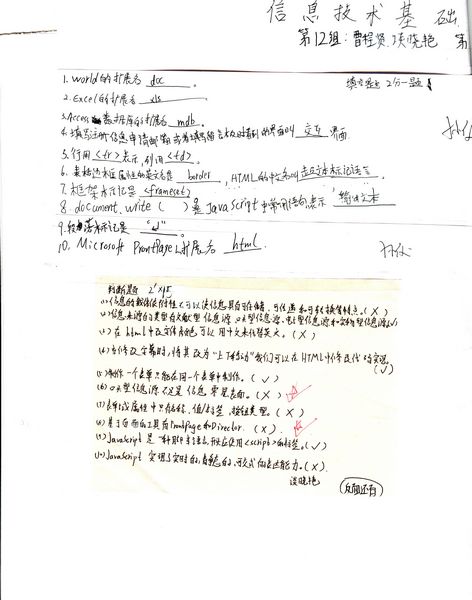 信息技术基础
第12组:曹程贤.谈晓艳 第
1. world的扩展名 doc 。 填空题 2分一题
2. Excel的扩展名 xls 。
3. Access数据库的扩展名 mdb 。
4. 填写注册信息申请邮箱或者填写留言本及时看到的界面叫 交互 界面
5. 行用 <tr> 表示,列用 <td> 。
6. 表格边框属性的英文名是 border ,HTML的中文名叫超文本标记语言。
7. 框架标记是 <frameset>
8. document.write ( ) 是JavaScript中常用语句表示 输出文本
9. 段落标记是 “</>”
10. Microsoft FrontPage扩展名 html .
判断题 2'×
(1)信息的载体依附性 可以使信息具有可存储、可传递和可转换等特点。(×)
(2)信息来源的类型有文献型信息源、口头型信息源、电子型信息源和实物型信息源(√)
(3)在html中改文体颜色,可以用中文来代替英文。(×)
(√)
(5)制作一个表单只能在同一个表单中制作。(√)
(6)口头型信息源不足是信息零星表面。(×)
(7)表单域属性中只有名称、值/标签、按钮类型。(×)
(8)基于页面的工具有FrontPage和Director. (×)
(9)JavaScript是一种脚本语言,开始应使用<script>的标签。(√)
(10)JavaScript 实现了实时的、动态的、可交式的表达能力。(×)
谈晓艳
(反面还有)